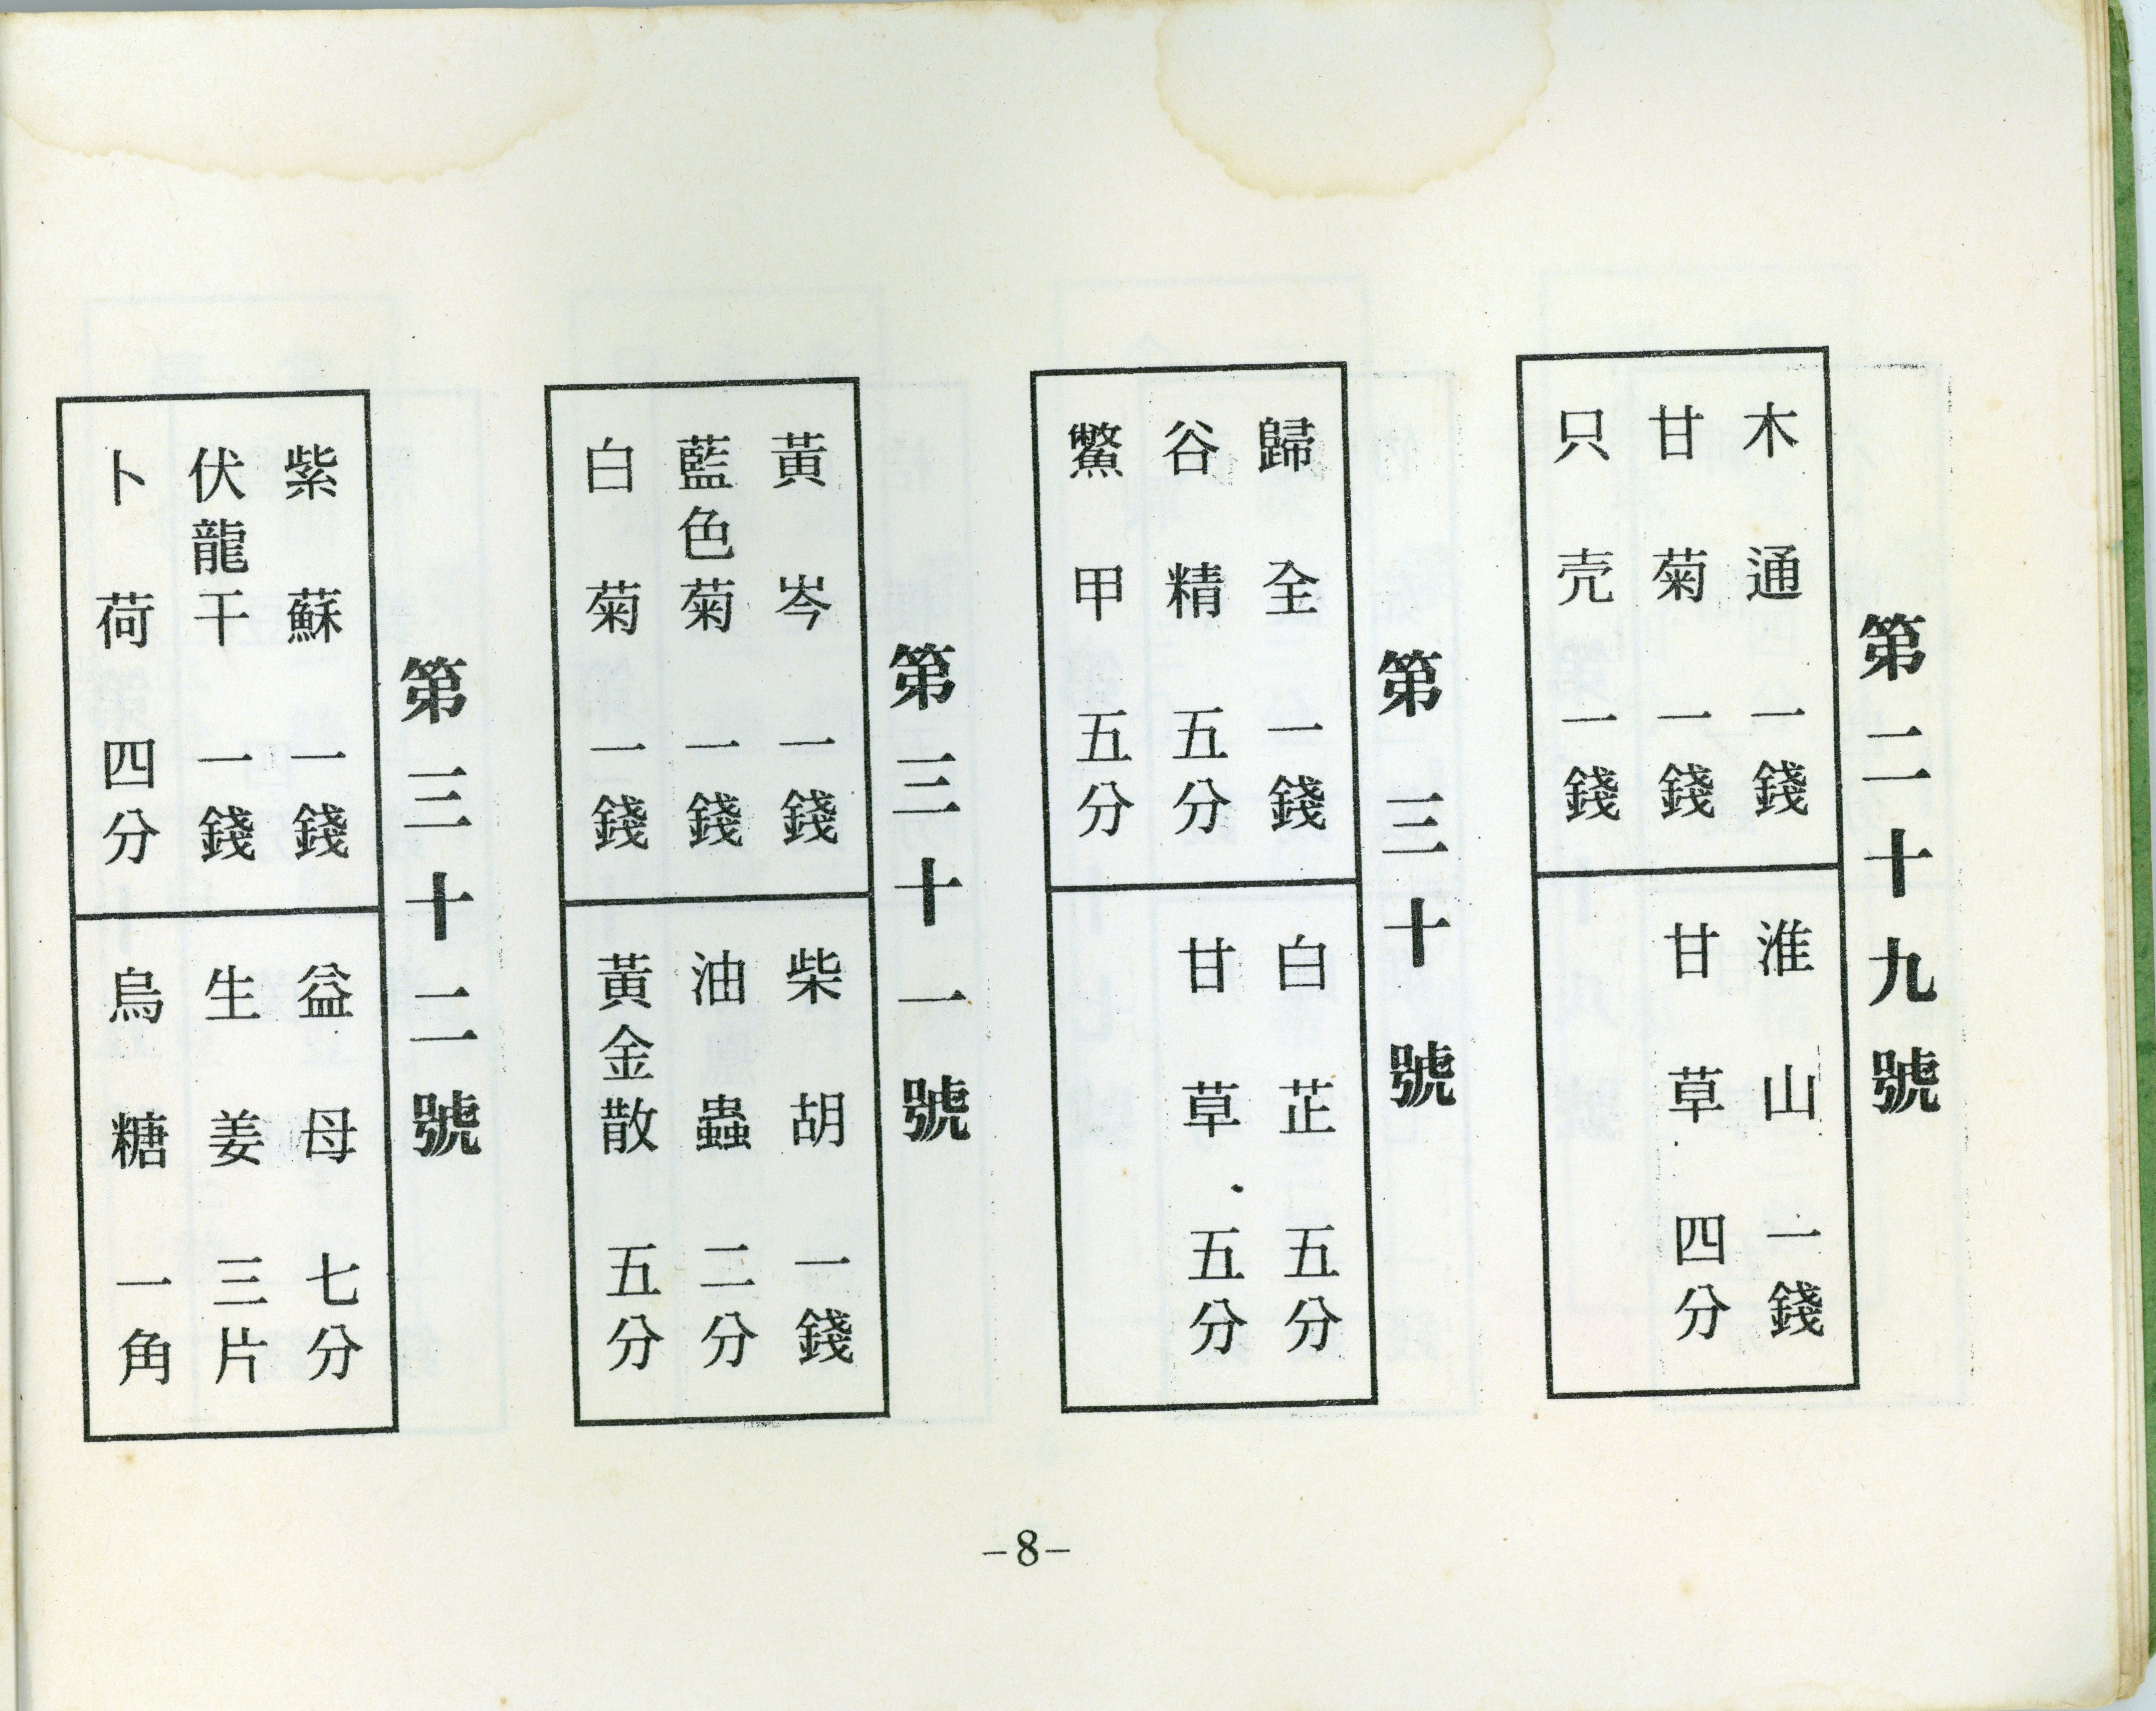 第二十九號
木通一錢
甘菊一錢
只壳一錢
淮山一錢
甘草四分
第三十號
歸全一錢
谷精五分
鱉甲五分
白芷五分
甘草五分
第三十一號
黃岑一錢
藍色菊一錢
白菊一錢
柴胡一錢
油蟲二分
黃金散五分
第三十二號
紫蘇一錢
伏龍干一錢
卜荷四分
益母七分
生姜三片
烏糖一角
-8-